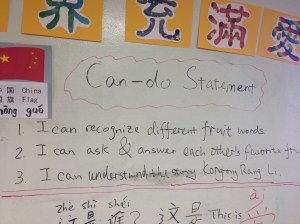 界充滿愛
国 China
国旗 Flag
hōng guó
Can-do Statement
1. I can recognize different fruit words.
2. I can ask & answer each other's favorite fru
3. I can understand the story Kongrong Rang Li.
zhè shì shéi
这是谁? 这是 This is